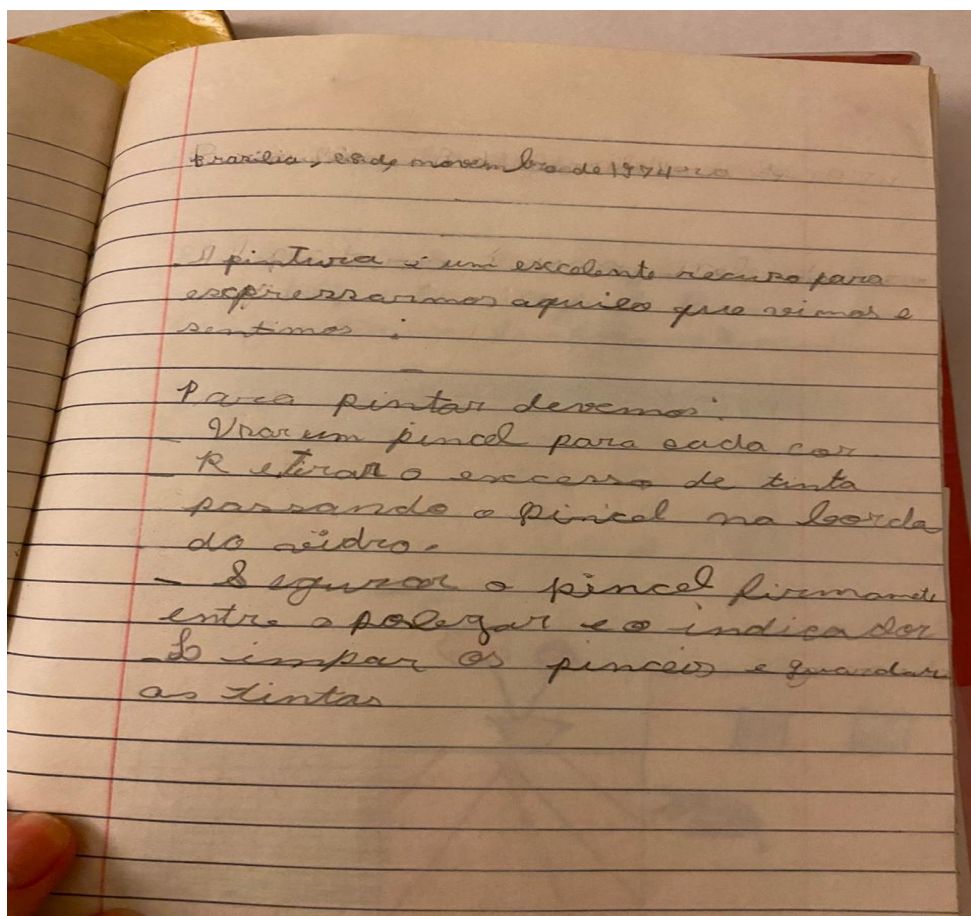 Brasília, de novembro de 1974
A pintura é um excelente recurso para
expressarmos aquilo que vimos e
sentimos :
Para pintar devemos:
- Usar um pincel para cada cor
- Retirar o excesso de tinta
passando o pincel na borda
do vidro.
- Segurar o pincel firmamente
entre o polegar e o indicador
- Limpar os pinceis e guardar
as tintas